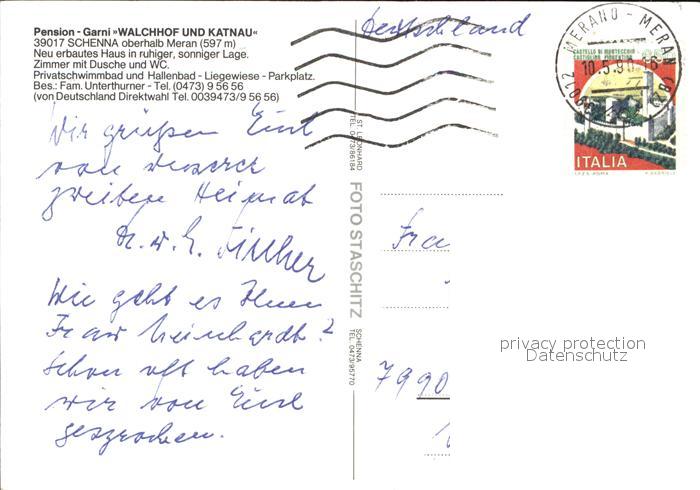 Pension - Garni »WALCHHOF UND KATNAU«
39017 SCHENNA oberhalb Meran (597 m)
Neu erbautes Haus in ruhiger, sonniger Lage.
Zimmer mit Dusche und WC.
Privatschwimmbad und Hallenbad - Liegewiese - Parkplatz.
Bes.: Fam. Unterthurner - Tel. (0473) 9 56 56
(von Deutschland Direktwahl Tel. 0039473/9 56 56)
Wir grüßen Euch
von unserer
zweiten Heimat
H. u. E. Fischer
Wie geht es Ihnen
Frau Meinhardt?
Schon oft haben
wir von Euch
gesprochen.
ST. LEONHARD
TEL. 0473/86184
FOTO STASCHITZ
SCHENNA
TEL. 0473/95770
Deutschland
MERANO - MERAN (BZ)
10.5.90
CASTELLO DI MONTECCHIO
CASTIGLION FIORENTINO
ITALIA
I.P.Z.S. ROMA
Fra
7990
privacy protection
Datenschutz